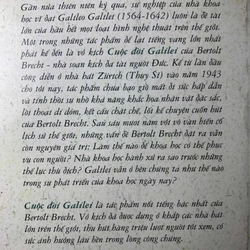 Gần nửa thiên niên kỷ qua, sự nghiệp của nhà khoa
học vĩ đại Galileo Galilei (1564-1642) luôn là đề tài
lớn của hầu hết mọi loại hình nghệ thuật trên thế giới.
Một trong những tác phẩm để lại tiếng vang lớn nhất
phải kể đến là vở kịch Cuộc đời Galilei của Bertolt
Brecht - nhà soạn kịch đa tài người Đức. Kể từ lần đầu
công diễn ở nhà hát Zürich (Thụy Sĩ) vào năm 1943
cho tới nay, tác phẩm chưa bao giờ mất đi sức hấp dẫn
và tính thời sự nhờ khả năng khắc họa nhân vật đặc sắc,
lối thoại dí dỏm, kết cấu chặt chẽ, lối kể chuyện cuốn hút
của Bertolt Brecht. Sau sáu mươi năm với vô vàn biến cố
lịch sử thế giới, những vấn đề Bertolt Brecht đặt ra vẫn
còn nguyên giá trị: Làm thế nào để khoa học có thể phục
vụ con người? Nhà khoa học hành xử ra sao trước những
thế lực thù địch? Galilei vẫn ở bên chúng ta như thế nào
trong sự phát triển của khoa học ngày nay?
Cuộc đời Galilei là tác phẩm nổi tiếng bậc nhất của
Bertolt Brecht. Vở kịch đã được dựng ở khắp các nhà hát
lớn trên thế giới, thu hút hàng triệu lượt người tới xem, có
sức ảnh hưởng lâu bền trong lòng công chúng.